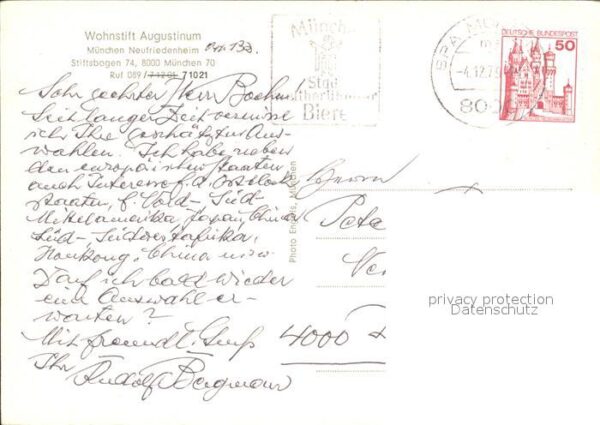 Wohnstift Augustinum
München Neufriedenheim App. 133
Stiftsbogen 74, 8000 München 70
Ruf 089/7 12 01 71021
Sehr geehrter Herr
Seit langer Zeit vermisse
ich Ihre geschätzten Aus-
wahlen. Ich habe neben
den europäischen Staaten
auch Interesse f. d. Ostblock-
staaten, f. Nord-, Süd-
Mittelamerika, Japan, China
Süd-, Südwestafrika,
Honkong, China usw
Darf ich bald wieder
eine Auswahl er-
warten?
Mit freundl. Gruß
Ihr Rudolf Bergmann
München
Stadt
Biere
-4.12.79
8000
DEUTSCHE BUNDESPOST
50
Photo München
Herrn
Pete
4000
privacy protection
Datenschutz